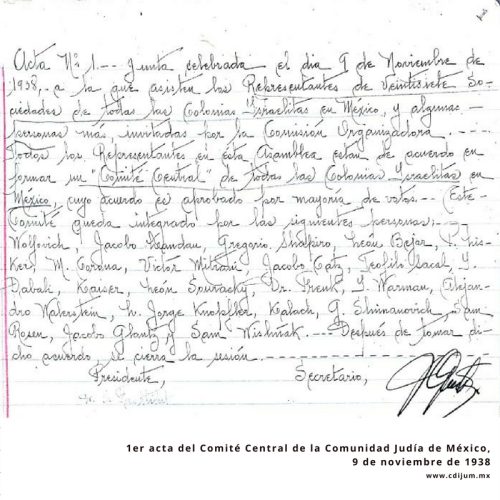 Acta Nº 1.-- Junta celebrada el dia 9 de Noviembre de
1938,- a la que asisten los Representantes de Veintisiete So-
ciedades de todas las Colonias Israelitas en México, y algunas-
personas más invitadas por la Comisión Organizadora.----
Todos los Representantes en ésta Asamblea están de acuerdo en
formar un "Comité Central" de todas las Colonias Israelitas en
México, cuyo acuerdo es aprobado por mayoria de votos.-- (Este
Comité queda integrado por las siguientes personas;---
Wolfovich, Jacobo Landau, Gregorio Shapiro, León Bejar, P.
ker, M. Corona, Victor Mitrani, Jacobo Catz, Teofilo Sacal, Y.
Babani, Kaiser, León Sourasky, Dr. Frenk, Y. Warman, Alejan-
dro Walerstein, L. Jorge Knopfller, Kalach, G. Shimanovich, Sam
Rosen, Jacobo Glantz y Sam Wishñak.--- Después de tomar di-
cho acuerdo, se cierra la sesión.-----------
Presidente, Secretario,
1er acta del Comité Central de la Comunidad Judía de México,
9 de noviembre de 1938
www.cdijum.mx